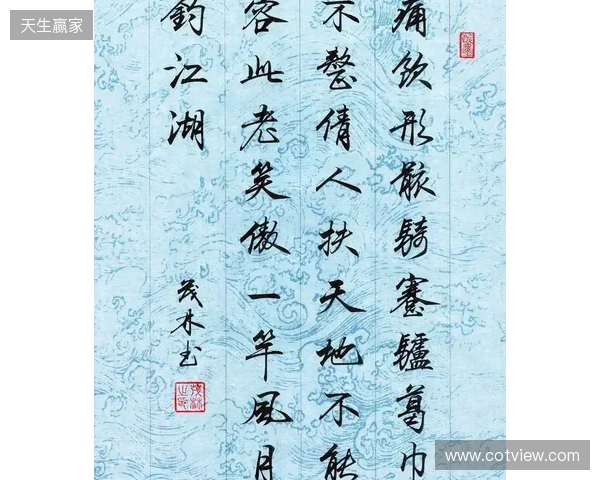 天生赢家
痛飲形骸騎蹇驢葛巾
不整倩人扶天地不能
容此老笑傲一竿風月
釣江湖
茂林书
www.cotview.com